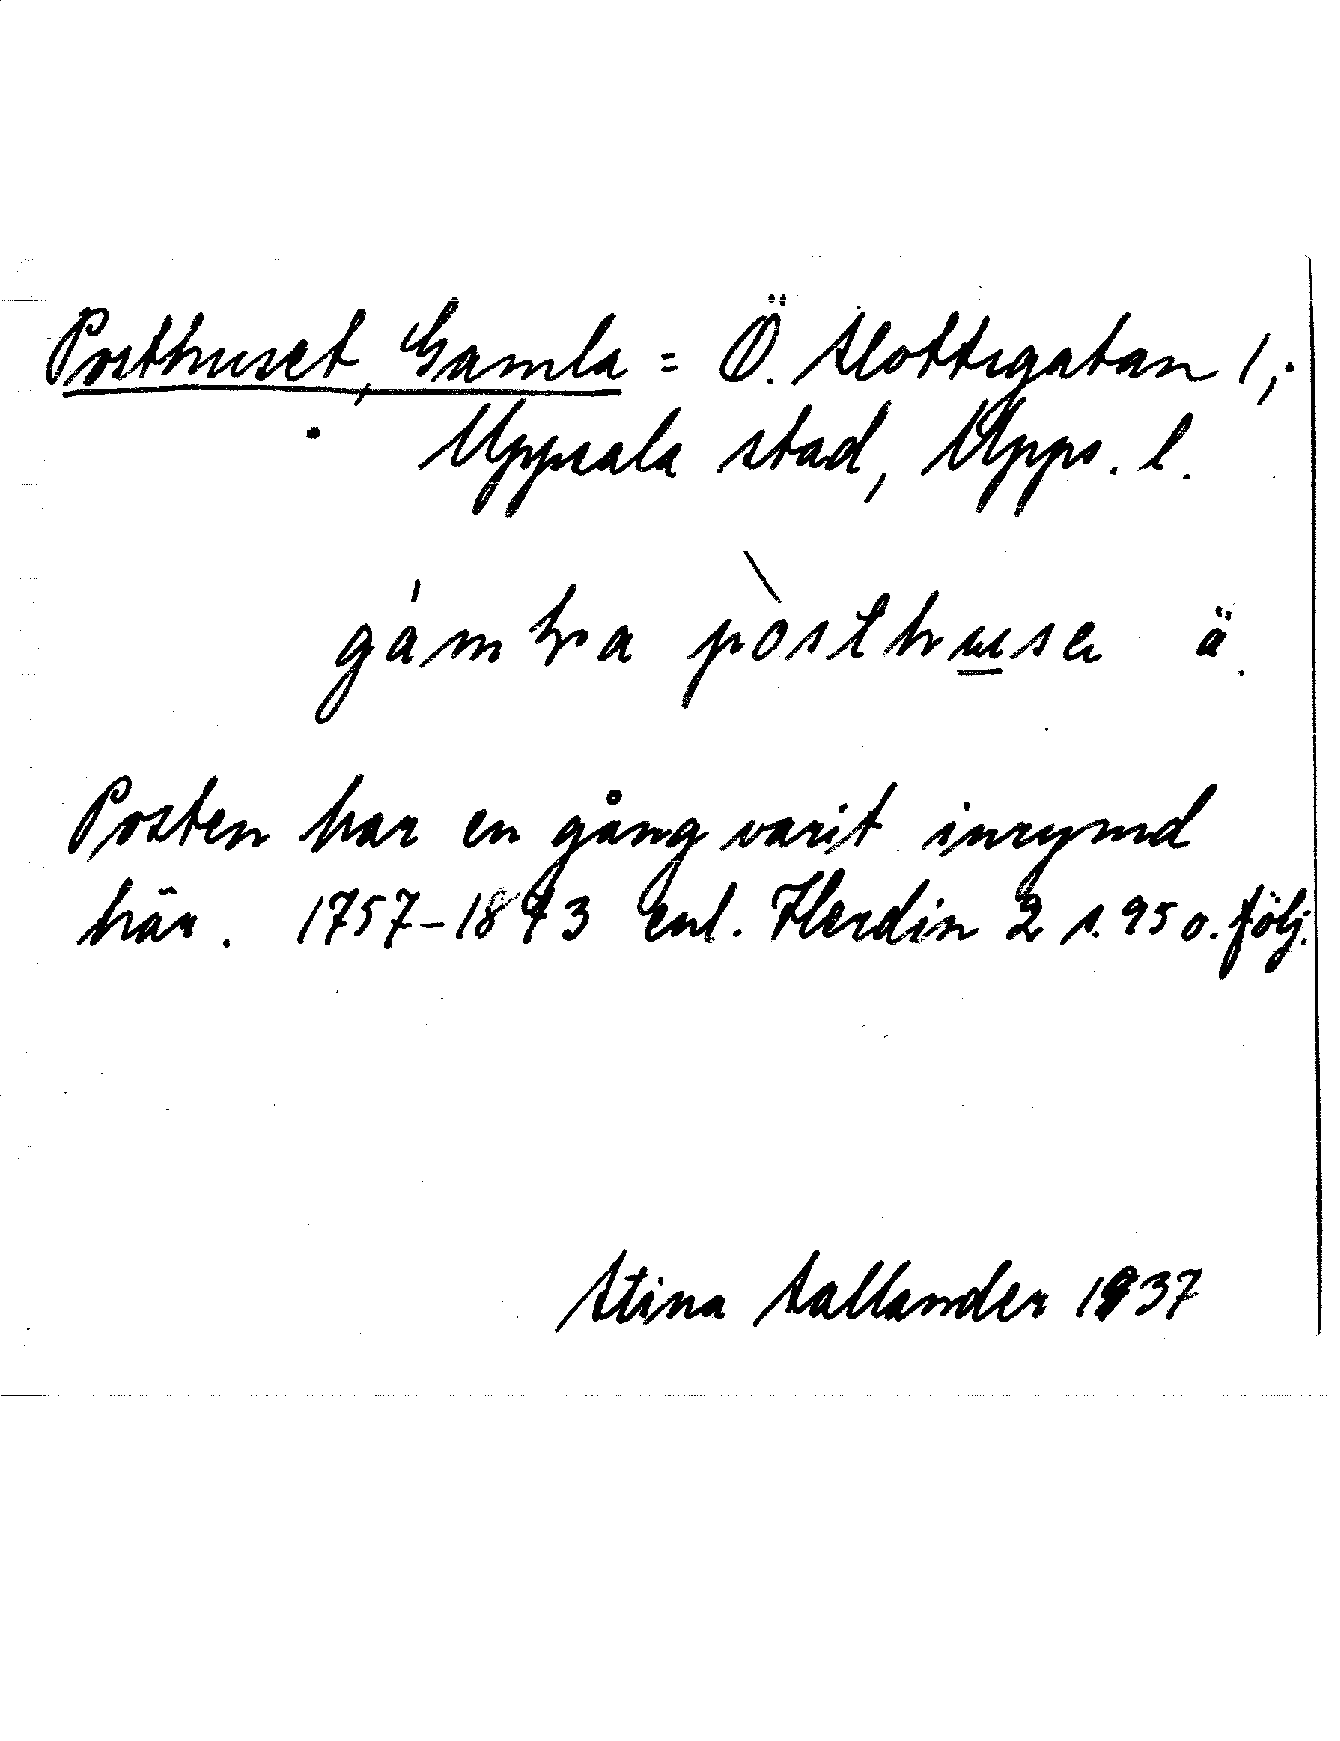 Posthuset, Gamla = Ö. Slottsgatan 1,
Uppsala stad, Upps. l.
posthuse ä.
Posten har en gång varit inrymd
här. 1757–1843 enl. Herdin 2 s. 95 o. följ.
Stina Sallander 1937